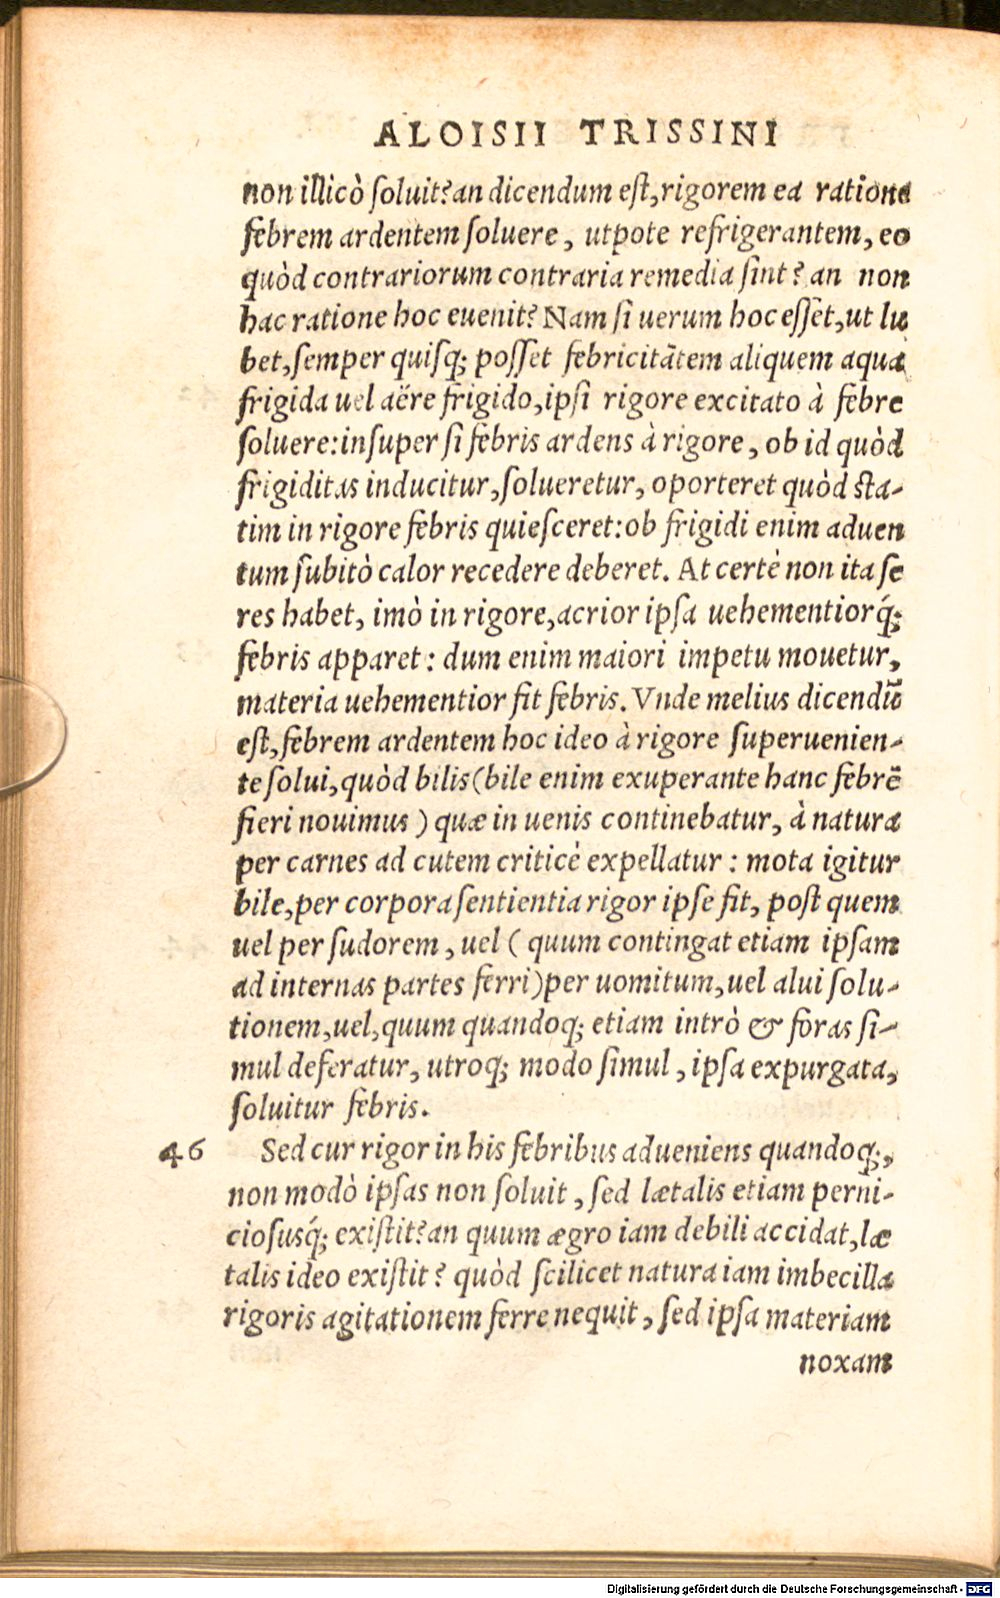 ALOISII TRISSINI
non illicò ſoluit? an dicendum eſt, rigorem ea ratione
febrem ardentem ſoluere, utpote refrigerantem, eo
quòd contrariorum contraria remedia ſint? an non
hac ratione hoc euenit? Nam ſi uerum hoc eſſet, ut lu
bet, ſemper quiſq; poſſet febricitãtem aliquem aqua
frigida uel aëre frigido, ipſi rigore excitato à febre
ſoluere: inſuper ſi febris ardens à rigore, ob id quòd
frigiditas inducitur, ſolueretur, oporteret quòd ſta-
tim in rigore febris quieſceret: ob frigidi enim aduen
tum ſubitò calor recedere deberet. At certè non ita ſe
res habet, imò in rigore, acrior ipſa uehementiorq́;
febris apparet: dum enim maiori impetu mouetur,
materia uehementior fit febris. Vnde melius dicendũ
eſt, febrem ardentem hoc ideo à rigore ſuperuenien-
te ſolui, quòd bilis (bile enim exuperante hanc febrẽ
fieri nouimus) quæ in uenis continebatur, à natura
per carnes ad cutem criticè expellatur: mota igitur
bile, per corpora ſentientia rigor ipſe fit, poſt quem
uel per ſudorem, uel (quum contingat etiam ipſam
ad internas partes ferri) per uomitum, uel alui ſolu-
tionem, uel, quum quandoq; etiam intrò & foras ſi-
mul deferatur, utroq; modo ſimul, ipſa expurgata,
ſoluitur febris.
46 Sed cur rigor in his febribus adueniens quandoq;,
non modò ipſas non ſoluit, ſed lætalis etiam perni-
cioſusq́; exiſtit? an quum ægro iam debili accidat, læ
talis ideo exiſtit? quòd ſcilicet natura iam imbecilla
rigoris agitationem ferre nequit, ſed ipſa materiam
noxam
Digitalisierung gefördert durch die Deutsche Forschungsgemeinschaft - DFG